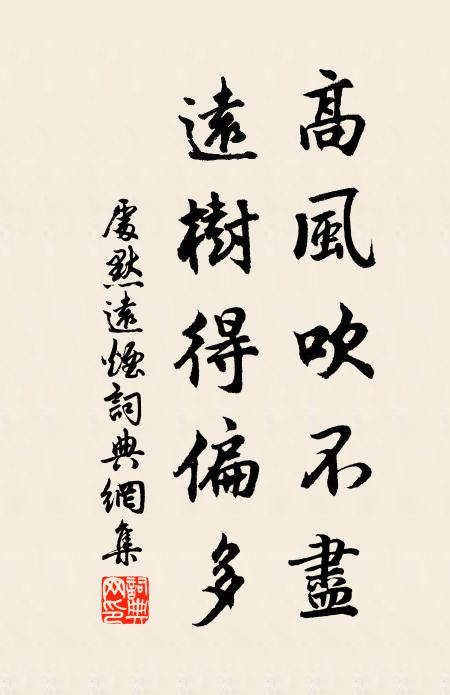 高風吹不盡
遠樹得偏多
處默遠煙詞典網集
詞典网印